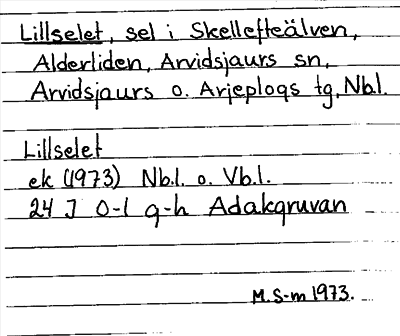 Lillselet, sel i Skellefteälven,
Alderliden, Arvidsjaurs sn,
Arvidsjaurs o. Arjeplogs tg, Nbl.
Lillselet
ek (1973) Nb.l. o. Vb.l.
24 J 0-1 g-h Adakgruvan
M. S-m 1973.